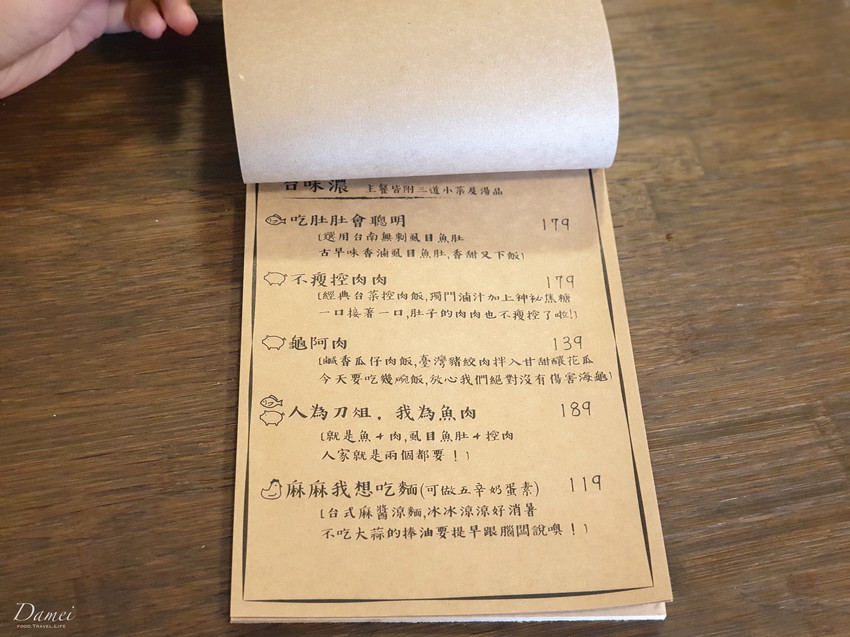 台味濃 主餐皆附三道小菜及湯品
吃肚肚會聰明 179
[選用台南無刺虱目魚肚
古早味香滷虱目魚肚,香甜又下飯]
不瘦控肉肉 179
[經典台菜控肉飯,獨門滷汁加上神祕焦糖
一口接著一口,肚子的肉肉也不瘦控了啦!]
龜阿肉 139
[鹹香瓜仔肉飯,臺灣豬絞肉拌入甘甜釀花瓜
今天要吃幾碗飯,放心我們絕對沒有傷害海龜]
人為刀俎,我為魚肉 189
[就是魚+肉,虱目魚肚+控肉
人家就是兩個都要!]
麻麻我想吃麵(可做五辛奶蛋素) 119
[台式麻醬涼麵,冰冰涼涼好消暑
不吃大蒜的捧油要提早跟腦闆說噢!]
Damei
FOOD.TRAVEL.LIFE